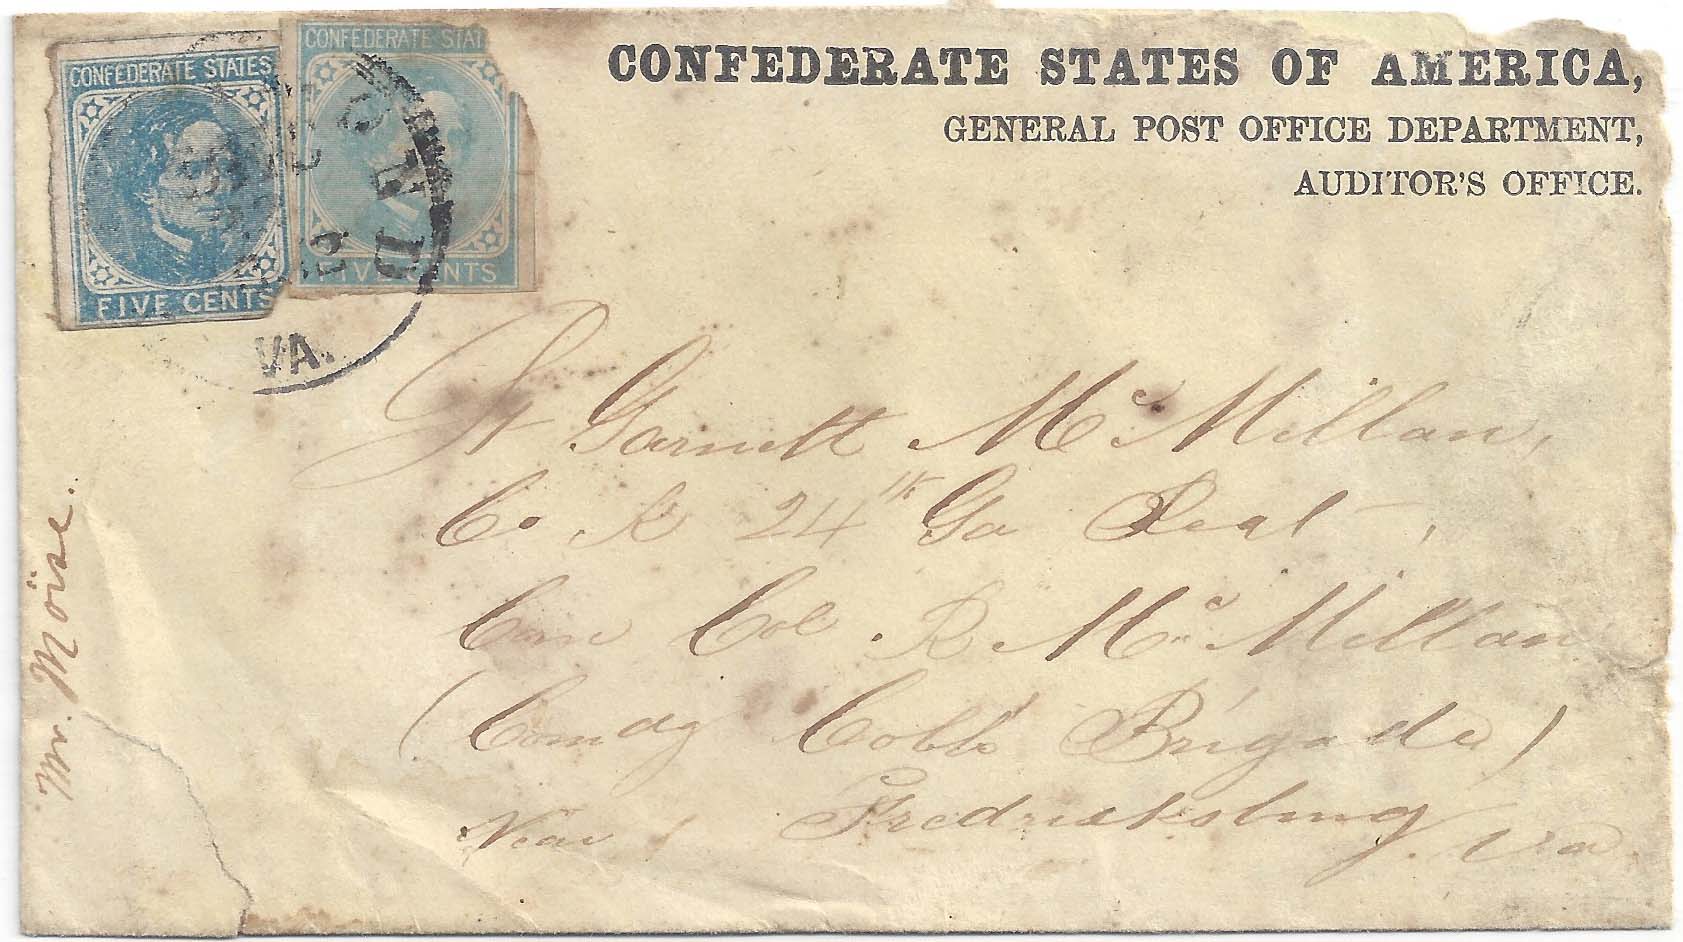 CONFEDERATE STATES OF AMERICA,
GENERAL POST OFFICE DEPARTMENT,
AUDITOR'S OFFICE.
CONFEDERATE STATES
FIVE CENTS
CONFEDERATE STAT
FIVE CENTS
VA.
Lt Garnett McMillan,
Co. K 24th Ga Regt,
Care Col. R McMillan
(Comdg Cobb's Brigade)
Near Fredricksburg Va
Mr. Moïse.